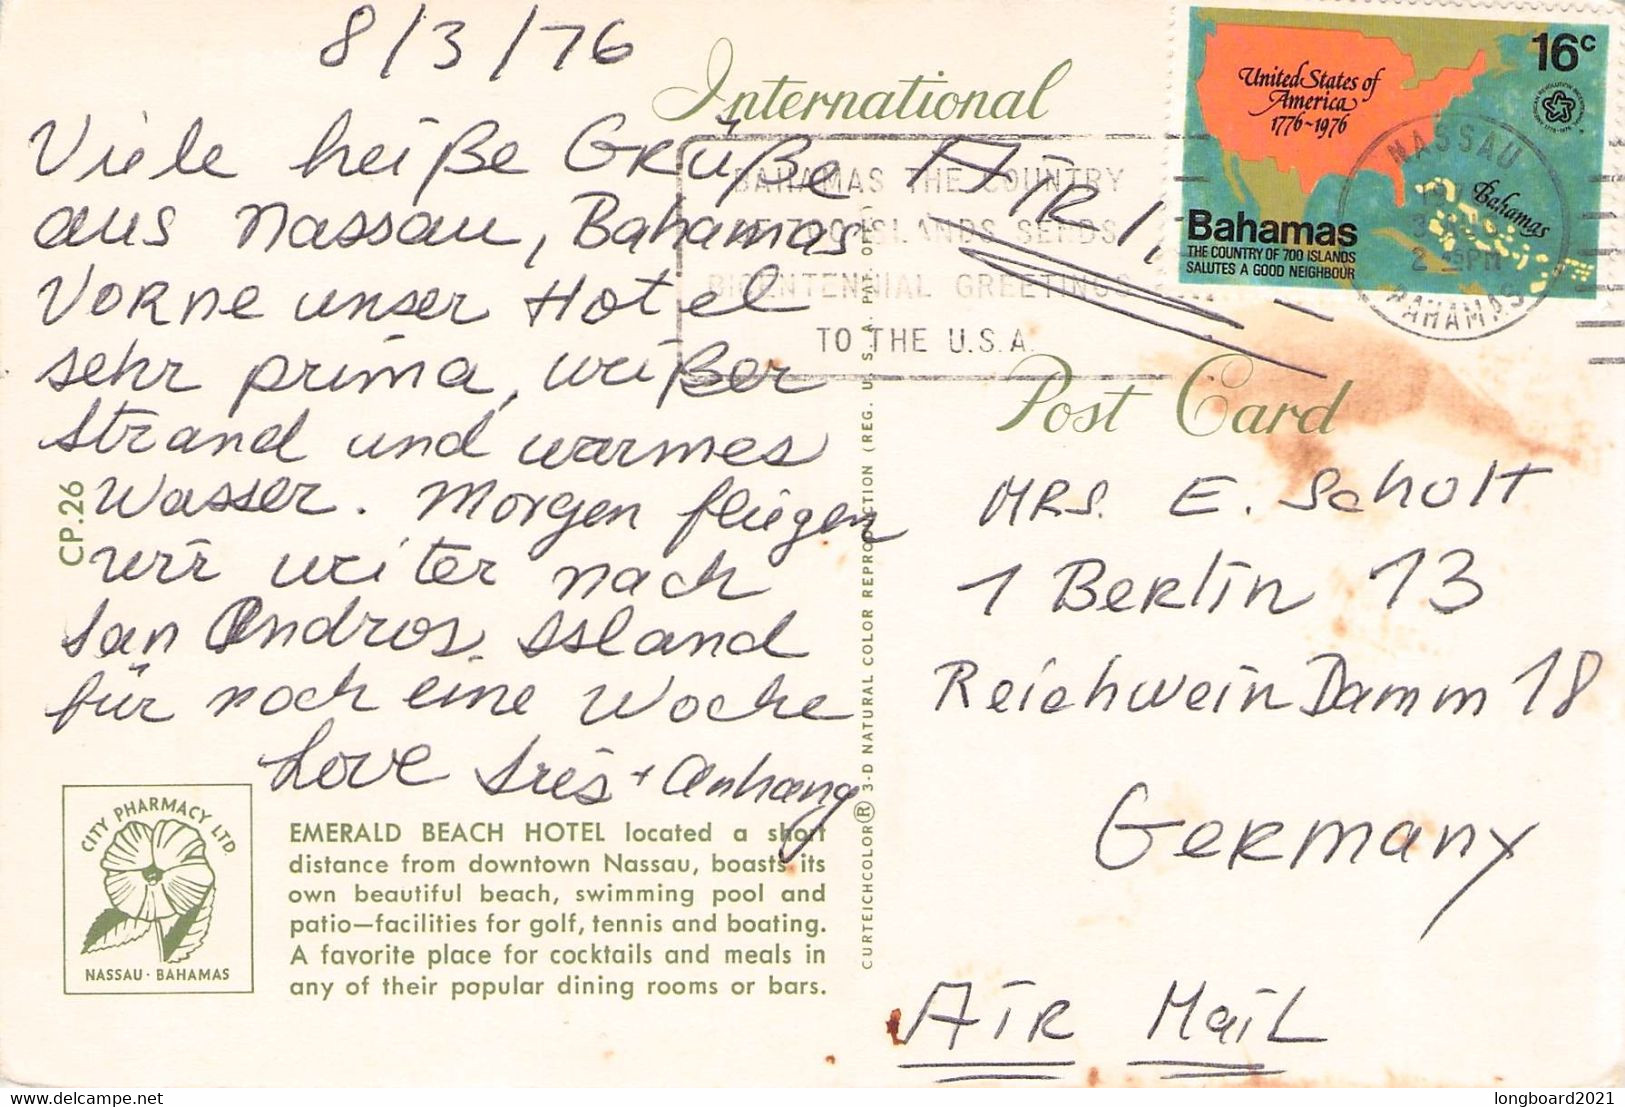 8/3/76
Viele heiße Grüße
aus Nassau, Bahamas
Vorne unser Hotel
sehr prima, weißer
Strand und warmes
Wasser. Morgen fliegen
wir weiter nach
San Andros Island
für noch eine Woche
Love Iris + Anhang
CP.26
CITY PHARMACY LTD.
NASSAU · BAHAMAS
EMERALD BEACH HOTEL located a short
distance from downtown Nassau, boasts its
own beautiful beach, swimming pool and
patio—facilities for golf, tennis and boating.
A favorite place for cocktails and meals in
any of their popular dining rooms or bars.
CURTEICHCOLOR® 3-D NATURAL COLOR REPRODUCTION (REG. U.S.A. PAT. OFF.)
International
AIR
BAHAMAS THE COUNTRY
OF 700 ISLANDS SENDS
BICENTENNIAL GREETINGS
TO THE U.S.A.
16c
United States of
America
1776~1976
Bahamas
Bahamas
THE COUNTRY OF 700 ISLANDS
SALUTES A GOOD NEIGHBOUR
NASSAU
3 AUG
2 PM
BAHAMAS
Post Card
MRS. E. Scholt
1 Berlin 13
ReichweinDamm 18
Germany
AIR MaiL
longboard2021